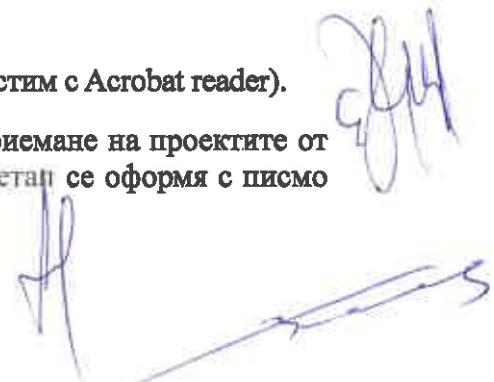 стим с Acrobat reader).
иемане на проектите от
етап се оформя с писмо